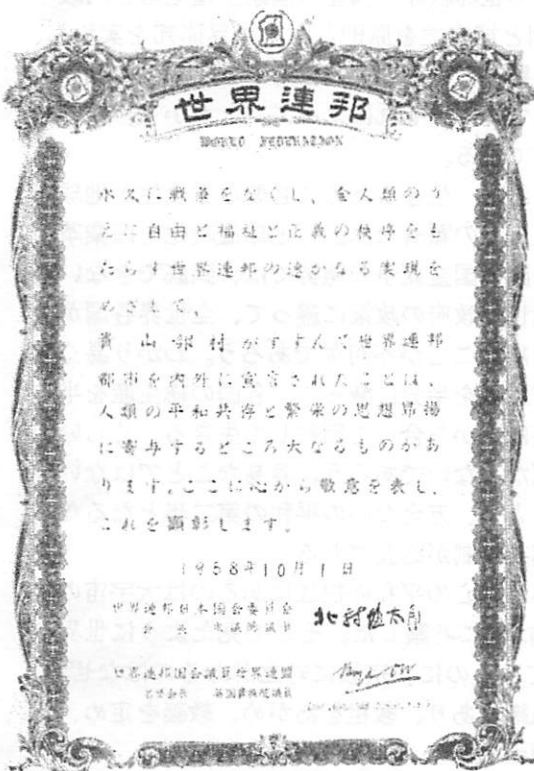 世界連邦
WORLD FEDERATION
永久に戦争をなくし、全人類のう
えに自由と福祉と正義の秩序をも
たらす世界連邦の速かなる実現を
貴山部村がすすんで世界連邦
都市を内外に宣言されたことは、
人類の平和共存と繁栄の思想昂揚
に寄与するところ大なるものがあ
ります。ここに心から敬意を表し、
これを顕彰します。
1958年10月1日
世界連邦日本国会委員会
北村徳太郎
世界連邦国会議員世界連盟
英国